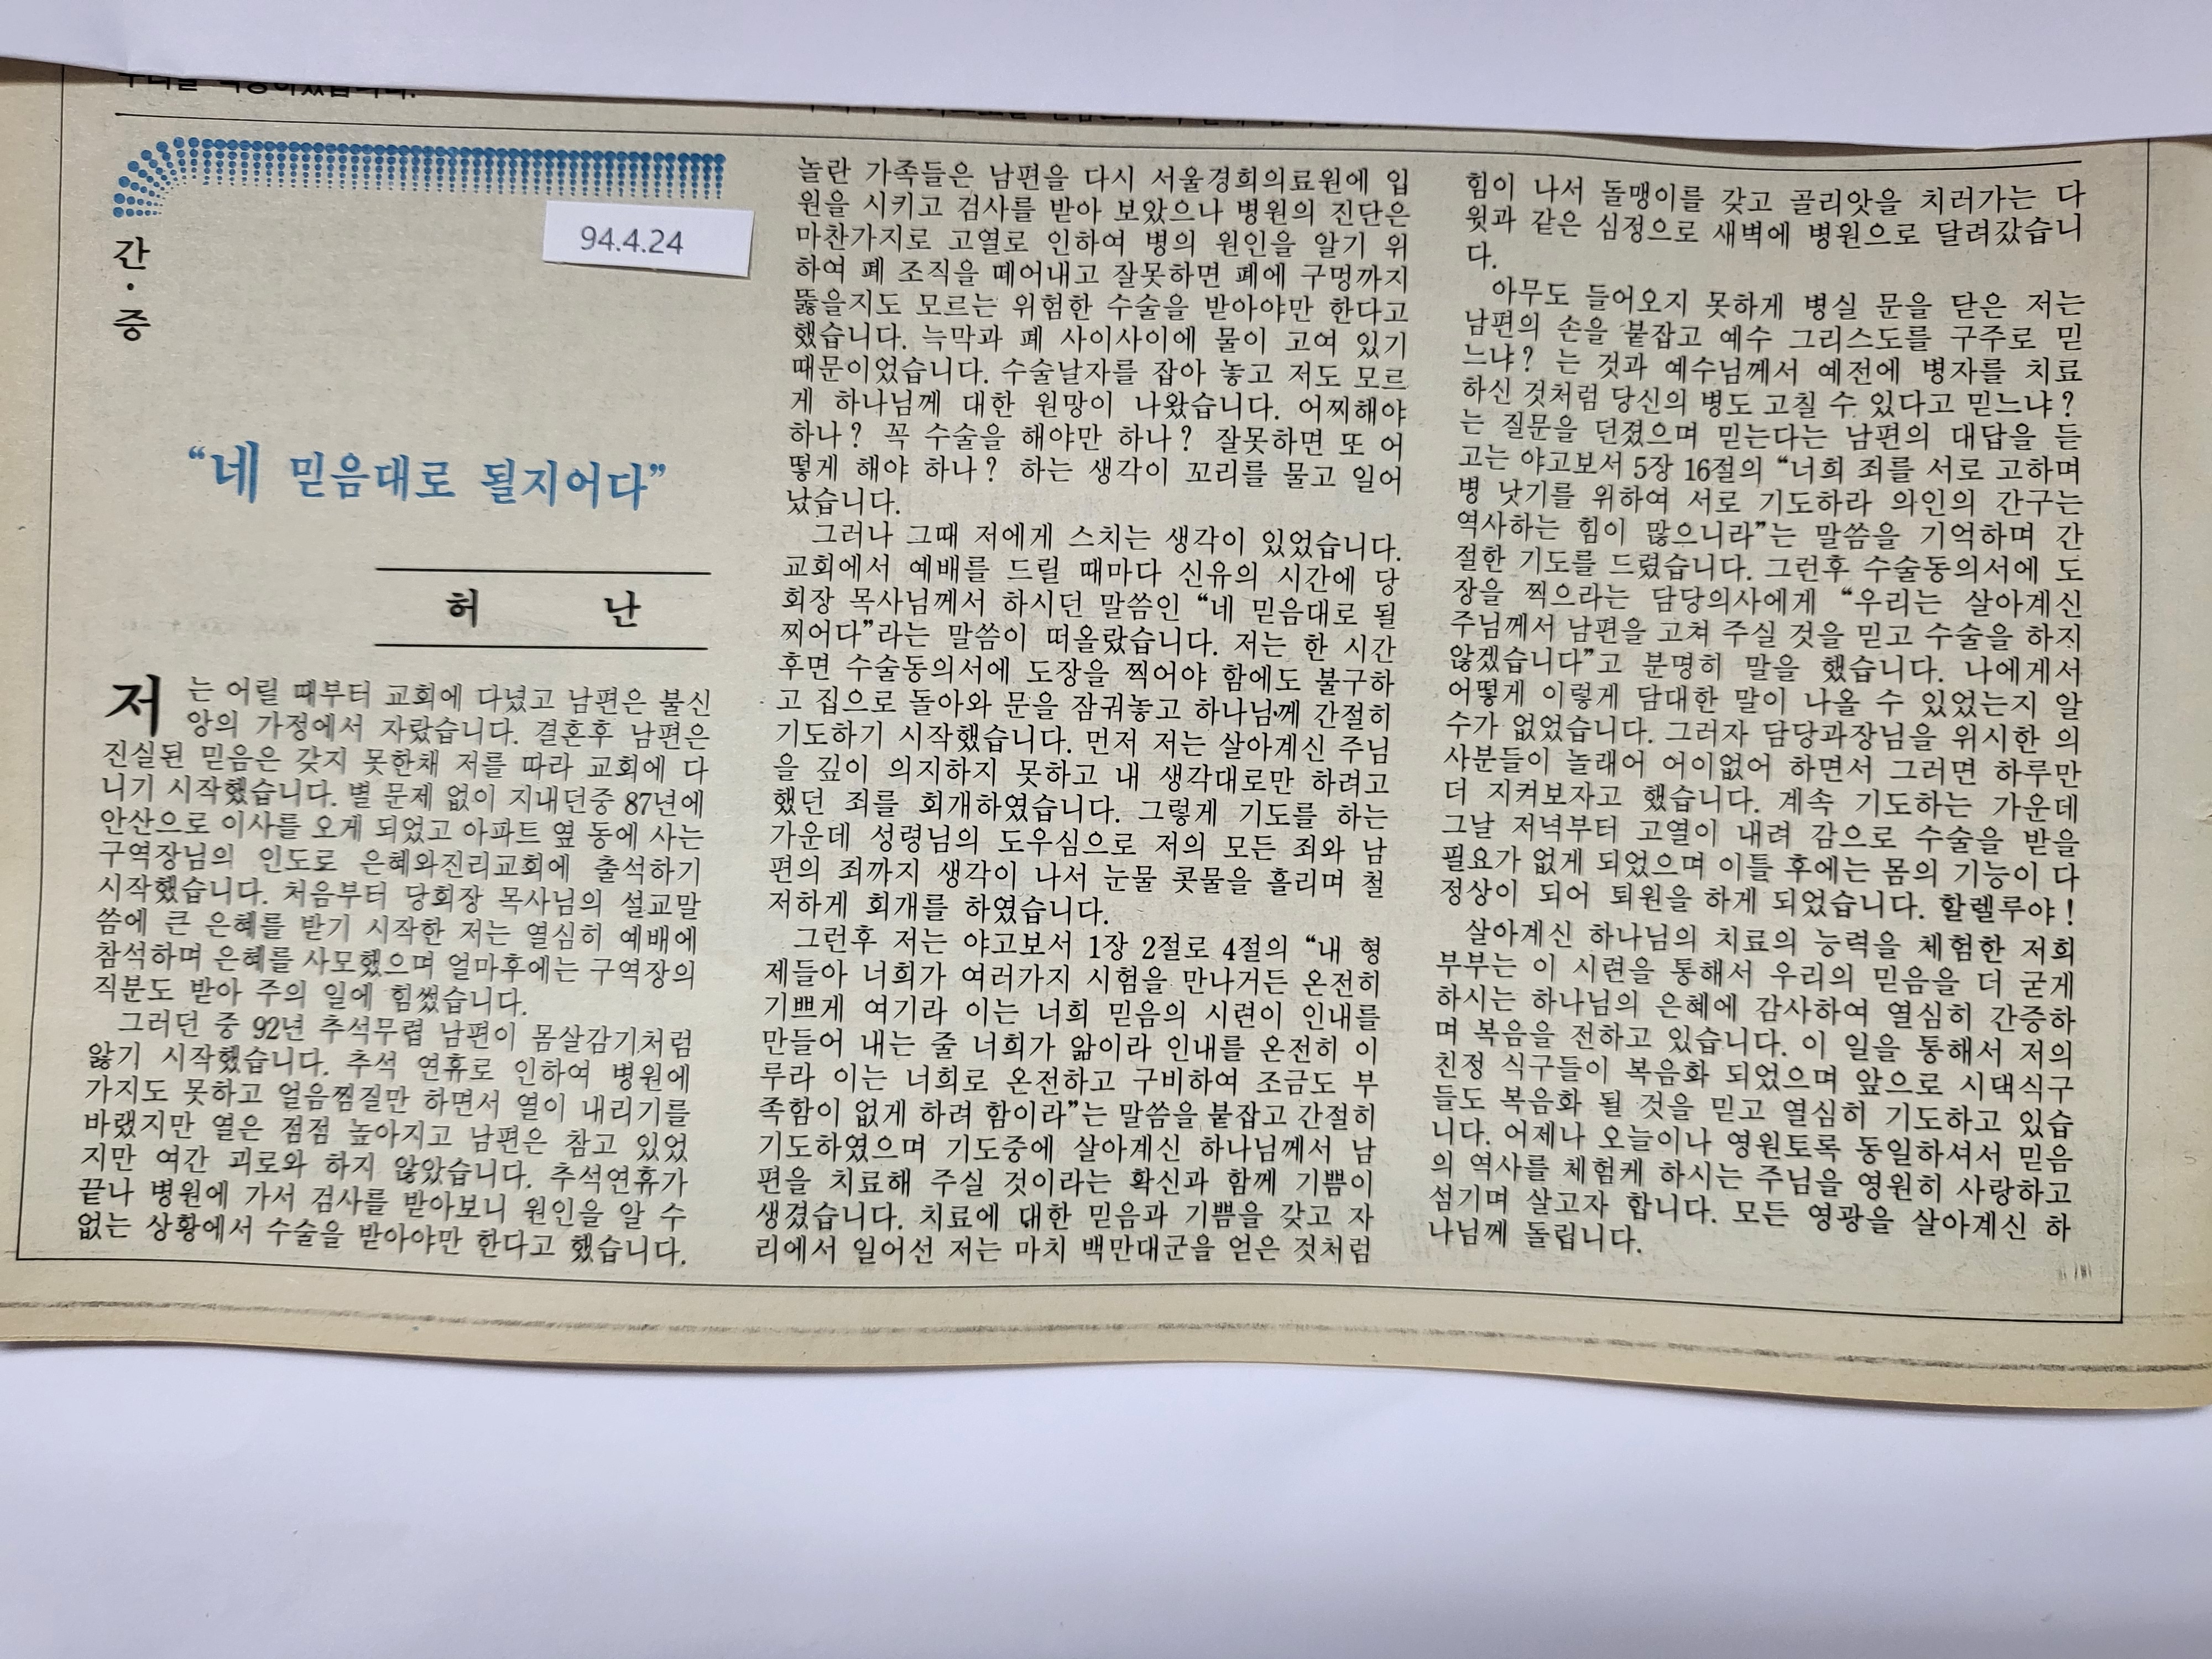 94.4.24
간·증
“네 믿음대로 될지어다”
허 난
저는 어릴 때부터 교회에 다녔고 남편은 불신
앙의 가정에서 자랐습니다. 결혼후 남편은
진실된 믿음은 갖지 못한채 저를 따라 교회에 다
니기 시작했습니다. 별 문제 없이 지내던중 87년에
안산으로 이사를 오게 되었고 아파트 옆 동에 사는
구역장님의 인도로 은혜와진리교회에 출석하기
시작했습니다. 처음부터 당회장 목사님의 설교말
씀에 큰 은혜를 받기 시작한 저는 열심히 예배에
참석하며 은혜를 사모했으며 얼마후에는 구역장의
직분도 받아 주의 일에 힘썼습니다.
그러던 중 92년 추석무렵 남편이 몸살감기처럼
앓기 시작했습니다. 추석 연휴로 인하여 병원에
가지도 못하고 얼음찜질만 하면서 열이 내리기를
바랬지만 열은 점점 높아지고 남편은 참고 있었
지만 여간 괴로와 하지 않았습니다. 추석연휴가
끝나 병원에 가서 검사를 받아보니 원인을 알 수
없는 상황에서 수술을 받아야만 한다고 했습니다.
놀란 가족들은 남편을 다시 서울경희의료원에 입
원을 시키고 검사를 받아 보았으나 병원의 진단은
마찬가지로 고열로 인하여 병의 원인을 알기 위
하여 폐 조직을 떼어내고 잘못하면 폐에 구멍까지
뚫을지도 모르는 위험한 수술을 받아야만 한다고
했습니다. 늑막과 폐 사이사이에 물이 고여 있기
때문이었습니다. 수술날자를 잡아 놓고 저도 모르
게 하나님께 대한 원망이 나왔습니다. 어찌해야
하나? 꼭 수술을 해야만 하나? 잘못하면 또 어
떻게 해야 하나? 하는 생각이 꼬리를 물고 일어
났습니다.
그러나 그때 저에게 스치는 생각이 있었습니다.
교회에서 예배를 드릴 때마다 신유의 시간에 당
회장 목사님께서 하시던 말씀인 “네 믿음대로 될
찌어다”라는 말씀이 떠올랐습니다. 저는 한 시간
후면 수술동의서에 도장을 찍어야 함에도 불구하
고 집으로 돌아와 문을 잠궈놓고 하나님께 간절히
기도하기 시작했습니다. 먼저 저는 살아계신 주님
을 깊이 의지하지 못하고 내 생각대로만 하려고
했던 죄를 회개하였습니다. 그렇게 기도를 하는
가운데 성령님의 도우심으로 저의 모든 죄와 남
편의 죄까지 생각이 나서 눈물 콧물을 흘리며 철
저하게 회개를 하였습니다.
그런후 저는 야고보서 1장 2절로 4절의 “내 형
제들아 너희가 여러가지 시험을 만나거든 온전히
기쁘게 여기라 이는 너희 믿음의 시련이 인내를
만들어 내는 줄 너희가 앎이라 인내를 온전히 이
루라 이는 너희로 온전하고 구비하여 조금도 부
족함이 없게 하려 함이라”는 말씀을 붙잡고 간절히
기도하였으며 기도중에 살아계신 하나님께서 남
편을 치료해 주실 것이라는 확신과 함께 기쁨이
생겼습니다. 치료에 대한 믿음과 기쁨을 갖고 자
리에서 일어선 저는 마치 백만대군을 얻은 것처럼
힘이 나서 돌맹이를 갖고 골리앗을 치러가는 다
윗과 같은 심정으로 새벽에 병원으로 달려갔습니
다.
아무도 들어오지 못하게 병실 문을 닫은 저는
남편의 손을 붙잡고 예수 그리스도를 구주로 믿
느냐? 는 것과 예수님께서 예전에 병자를 치료
하신 것처럼 당신의 병도 고칠 수 있다고 믿느냐?
는 질문을 던졌으며 믿는다는 남편의 대답을 듣
고는 야고보서 5장 16절의 “너희 죄를 서로 고하며
병 낫기를 위하여 서로 기도하라 의인의 간구는
역사하는 힘이 많으니라”는 말씀을 기억하며 간
절한 기도를 드렸습니다. 그런후 수술동의서에 도
장을 찍으라는 담당의사에게 “우리는 살아계신
주님께서 남편을 고쳐 주실 것을 믿고 수술을 하지
않겠습니다”고 분명히 말을 했습니다. 나에게서
어떻게 이렇게 담대한 말이 나올 수 있었는지 알
수가 없었습니다. 그러자 담당과장님을 위시한 의
사분들이 놀래어 어이없어 하면서 그러면 하루만
더 지켜보자고 했습니다. 계속 기도하는 가운데
그날 저녁부터 고열이 내려 감으로 수술을 받을
필요가 없게 되었으며 이틀 후에는 몸의 기능이 다
정상이 되어 퇴원을 하게 되었습니다. 할렐루야!
살아계신 하나님의 치료의 능력을 체험한 저희
부부는 이 시련을 통해서 우리의 믿음을 더 굳게
하시는 하나님의 은혜에 감사하여 열심히 간증하
며 복음을 전하고 있습니다. 이 일을 통해서 저의
친정 식구들이 복음화 되었으며 앞으로 시댁식구
들도 복음화 될 것을 믿고 열심히 기도하고 있습
니다. 어제나 오늘이나 영원토록 동일하셔서 믿음
의 역사를 체험케 하시는 주님을 영원히 사랑하고
섬기며 살고자 합니다. 모든 영광을 살아계신 하
나님께 돌립니다.